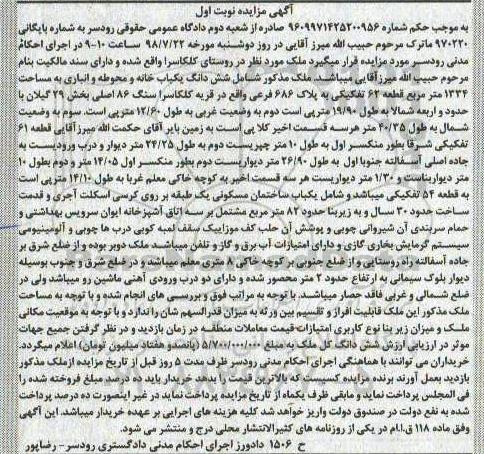 آگهی مزایده نوبت اول
به موجب حکم شماره ۹۶۰۹۹۷۱۴۲۵۲۰۰۹۵۶ صادره از شعبه دوم دادگاه عمومی حقوقی رودسر به شماره بایگانی
۹۷۰۲۲۰ ماترک مرحوم حبیب الله میرز آقایی در روز دوشنبه مورخه ۹۸/۷/۲۲ ساعت ۱۰-۹ در اجرای احکام
مدنی رودسر مورد مزایده قرار میگیرد ملک مورد نظر در روستای کلکاسرا واقع شده و دارای سند مالکیت بنام
مرحوم حبیب الله میرزآقایی میباشد. ملک مذکور شامل شش دانگ یکباب خانه و محوطه و انباری به مساحت
۱۳۳۴ متر مربع قطعه ۶۲ تفکیکی به پلاک ۶۸۶ فرعی واقع در قریه کلکاسرا سنگ ۸۶ اصلی بخش ۲۹ گیلان با
حدود و اربعه شمالا به طول ۱۹/۹۰ متری است دوم به وضعیت غربی به طول ۱۲/۶۰ متر پی است. سوم به وضعیت
شمال به طول ۴۰/۳۵ متر هرسه قسمت اخیر کلا پی است به زمین بایر آقای حکمت الله میرزآقایی قطعه ۶۱
تفکیکی شرقا بطور منکسر اول به طول ۱۰ متر چپریست دوم به طول ۲۴/۲۵ متر دیوار و درب ورودیست به
جاده اصلی آسفالته جنوبا اول به طول ۲۶/۹۰ متر دیواریست دوم بطور منکسر اول ۱۴/۰۵ متر و دوم بطول ۱۰
متر دیواریناست و ۱/۳۰ متر دیواریست هر سه قسمت اخیر به کوچه خاکی معلم غربا به طول ۱۴/۱۰ متر پی است
به قطعه ۵۴ تفکیکی میباشد و شامل یکباب ساختمان مسکونی یک طبقه بر روی کرسی اسکلت آجری و قدمت
ساخت حدود ۳۰ سال و به زیربنا حدود ۸۲ متر مربع مشتمل بر سه اتاق آشپزخانه ایوان سرویس بهداشتی و
حمام سربندی آن شیروانی چوبی و پوشش آن حلب کف موزاییک سقف لمبه کوبی درب ها چوبی و آلومینیومی
سیستم گرمایش بخاری گازی و دارای امتیازات آب برق و گاز و تلفن میباشد ملک دوبر بوده و از ضلع شرق بر
جاده آسفالته راه روستایی و از ضلع جنوبی بر کوچه خاکی ۸ متری معلم میباشد و در ضلع شرق و جنوب بوسیله
دیوار بلوک سیمانی به ارتفاع حدود ۲ متر محصور شده و دارای دو درب ورودی آهنی ماشین رو میباشد ولی در
ضلع شمالی و غربی فاقد حصار میباشد. با توجه به مراتب فوق و بررسی های انجام شده و با توجه به مساحت
ملک مذکور این ملک قابلیت افراز و تقسیم بین ورثه به میزان قدرالسهم شان را ندارد و با توجه به موقعیت مکانی
ملک و میزان زیر بنا نوع کاربری امتیازات قیمت معاملات منطقه در زمان بازدید و در نظر گرفتن جمیع جهات
موثر در ارزیابی ارزش شش دانگ کل ملک به مبلغ ۵/۷۰۰/۰۰۰/۰۰۰ (پانصد و هفتاد میلیون تومان) اعلام میگردد.
خریداران می توانند با هماهنگی اجرای احکام مدنی رودسر ظرف مدت ۵ روز قبل از تاریخ مزایده از ملک مذکور
بازدید بعمل آورند برنده مزایده کسیست که بالاترین قیمت را بدهد خریدار باید ده درصد مبلغ فروخته شده را
فی المجلس پرداخت نماید و مابقی ظرف یکماه از تاریخ مزایده پرداخت نماید در غیر اینصورت ده درصد پرداخت
شده به نفع دولت در صندوق دولت واریز خواهد شد کلیه هزینه های اجرایی بر عهده خریدار میباشد. این آگهی
وفق ماده ۱۱۸ ق.ا.ام در یکی از روزنامه های کثیرالانتشار محلی درج و منتشر می شود.
ح ۱۵۰۶ دادورز اجرای احکام مدنی دادگستری رودسر- رضاپور